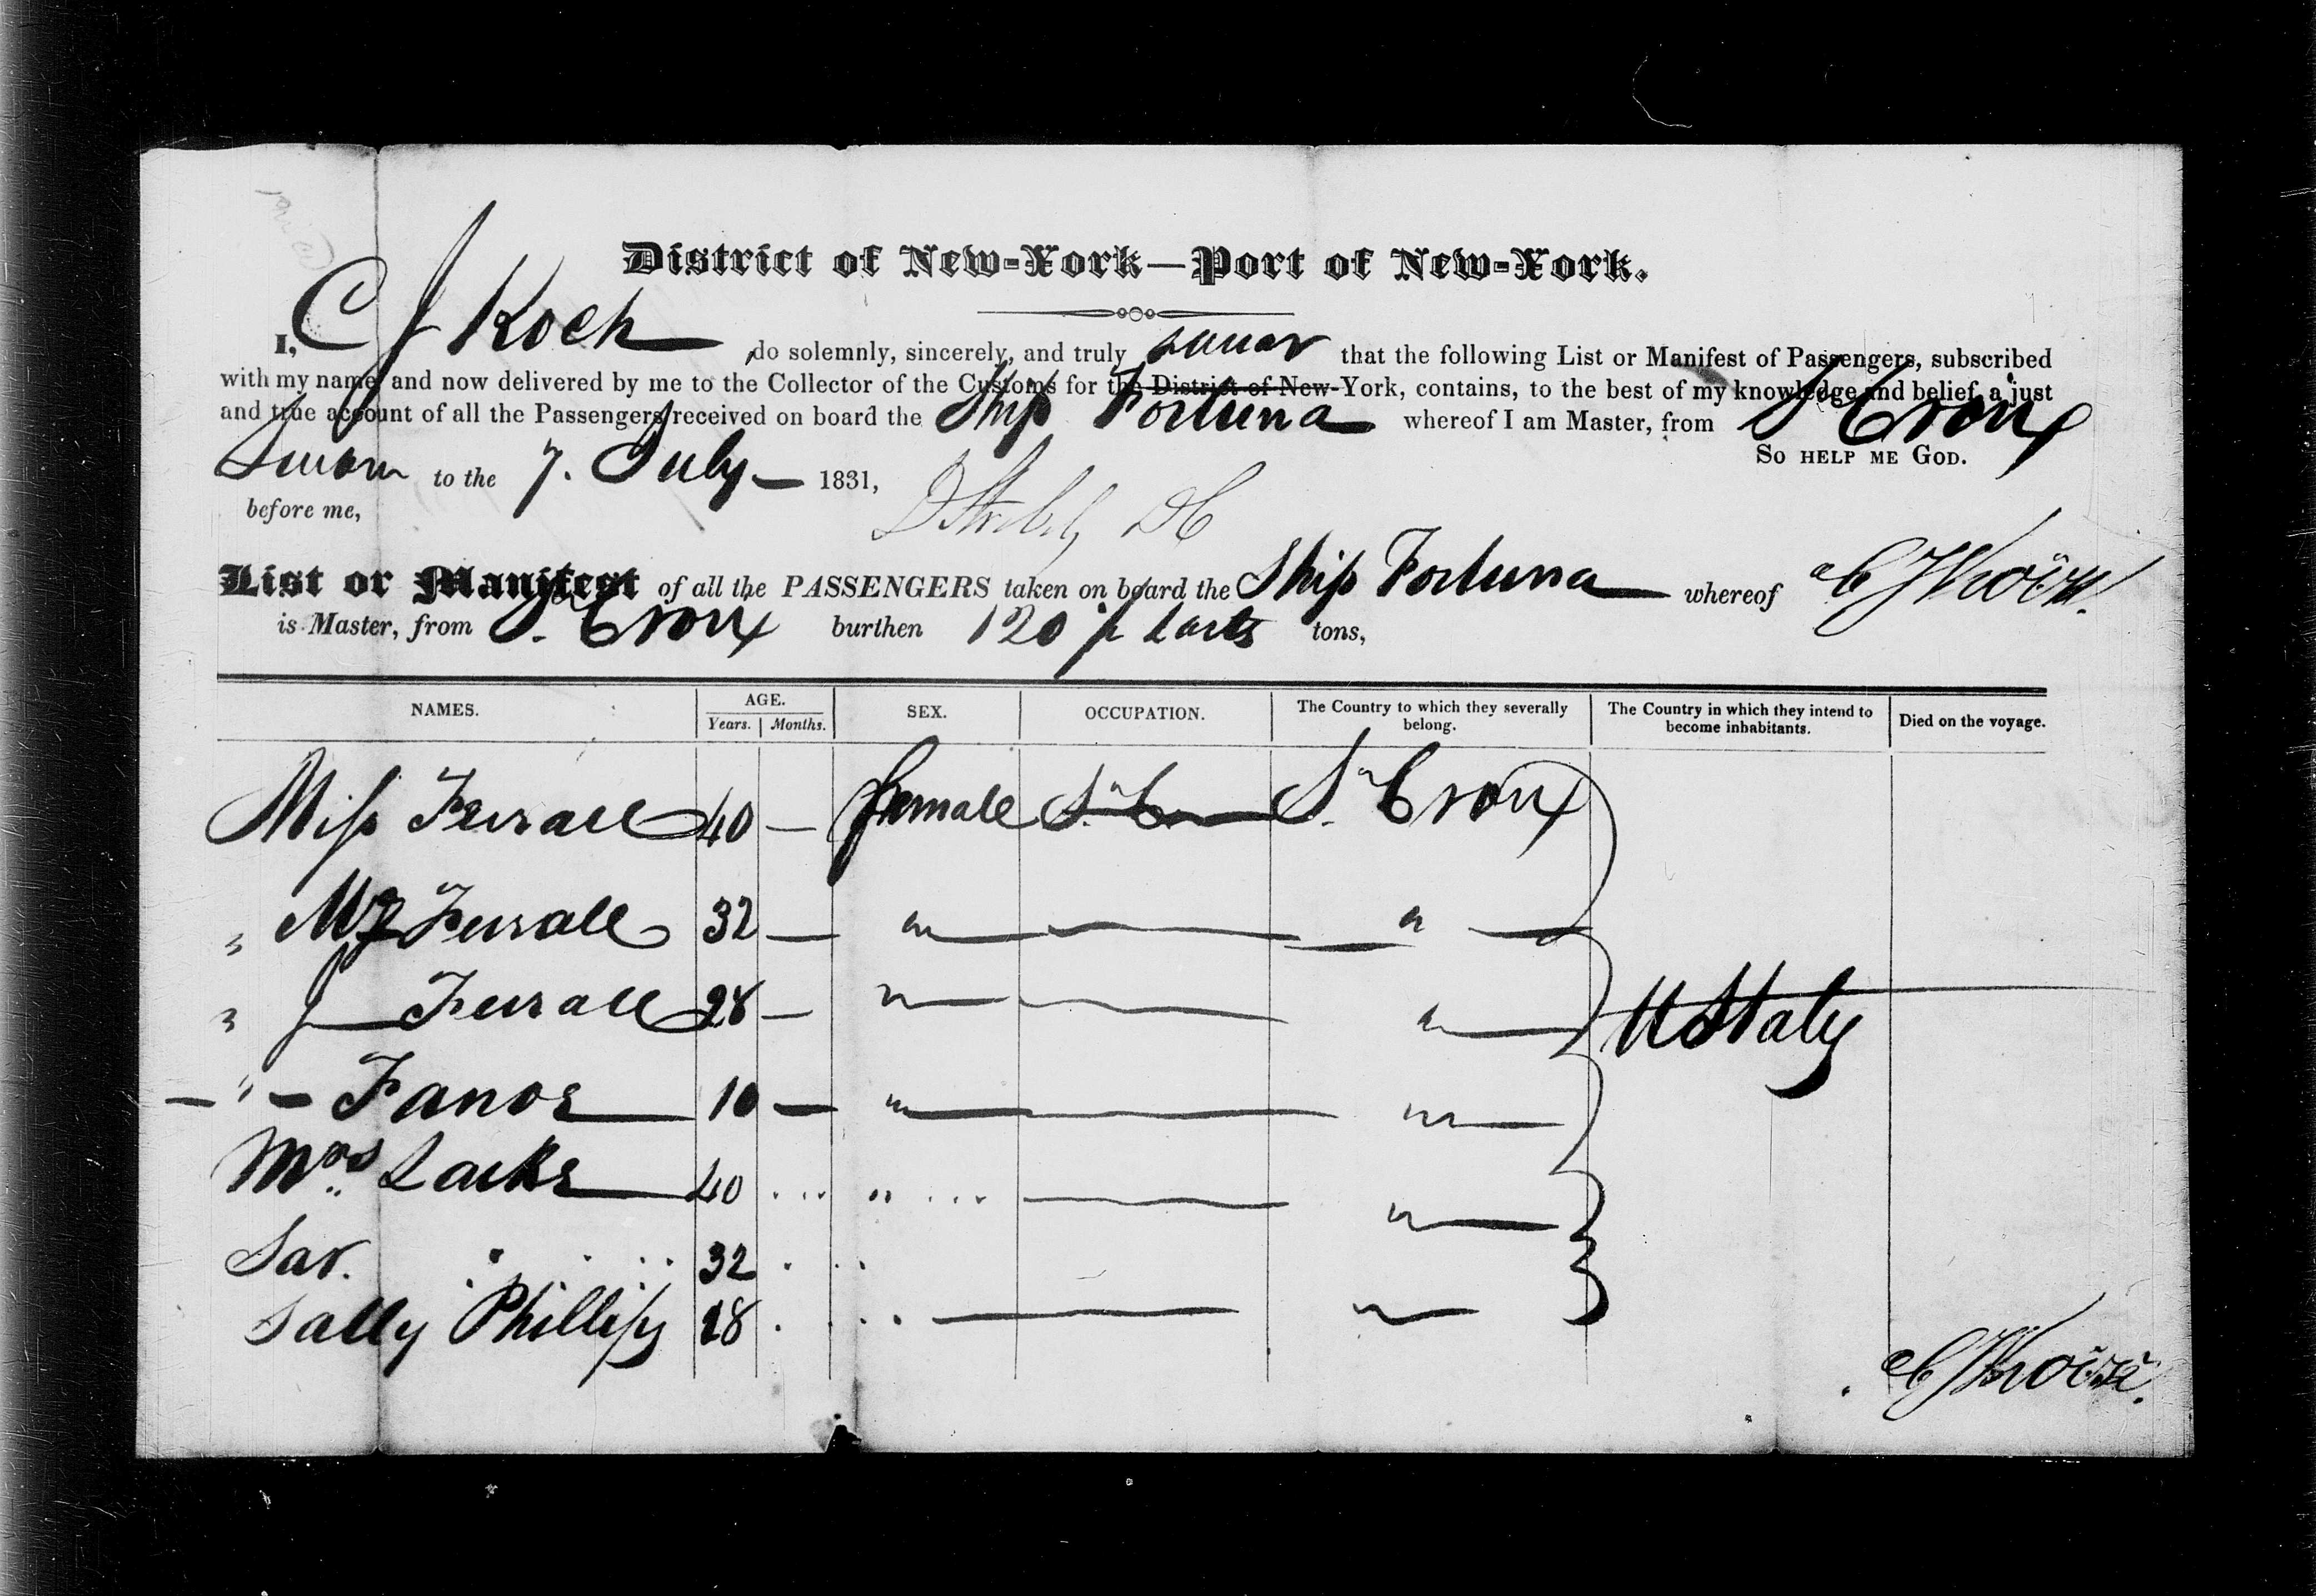 District of New-York—Port of New-York.
I, C J Koch do solemnly, sincerely, and truly swear that the following List or Manifest of Passengers, subscribed
with my name, and now delivered by me to the Collector of the Customs for the District of New-York, contains, to the best of my knowledge and belief, a just
and true account of all the Passengers received on board the Ship Fortuna whereof I am Master, from St Croix
So help me God.
Sworn to the 7. July 1831,
before me,
List or Manifest of all the PASSENGERS taken on board the Ship Fortuna whereof C J Koch
is Master, from St. Croix burthen 120 p Lasts tons,
NAMES. AGE. Years. Months. SEX. OCCUPATION. The Country to which they severally belong. The Country in which they intend to become inhabitants. Died on the voyage.
Miss Ferrall 40 — female St. Croix
" Ferrall 32 — " — " —
" J Ferrall 28 — " — " —
— " — 10 — " — " —
Mrs 40 ... " ... — " —
32
Sally Phillips 18 . . . — " —
U States
C J Koch